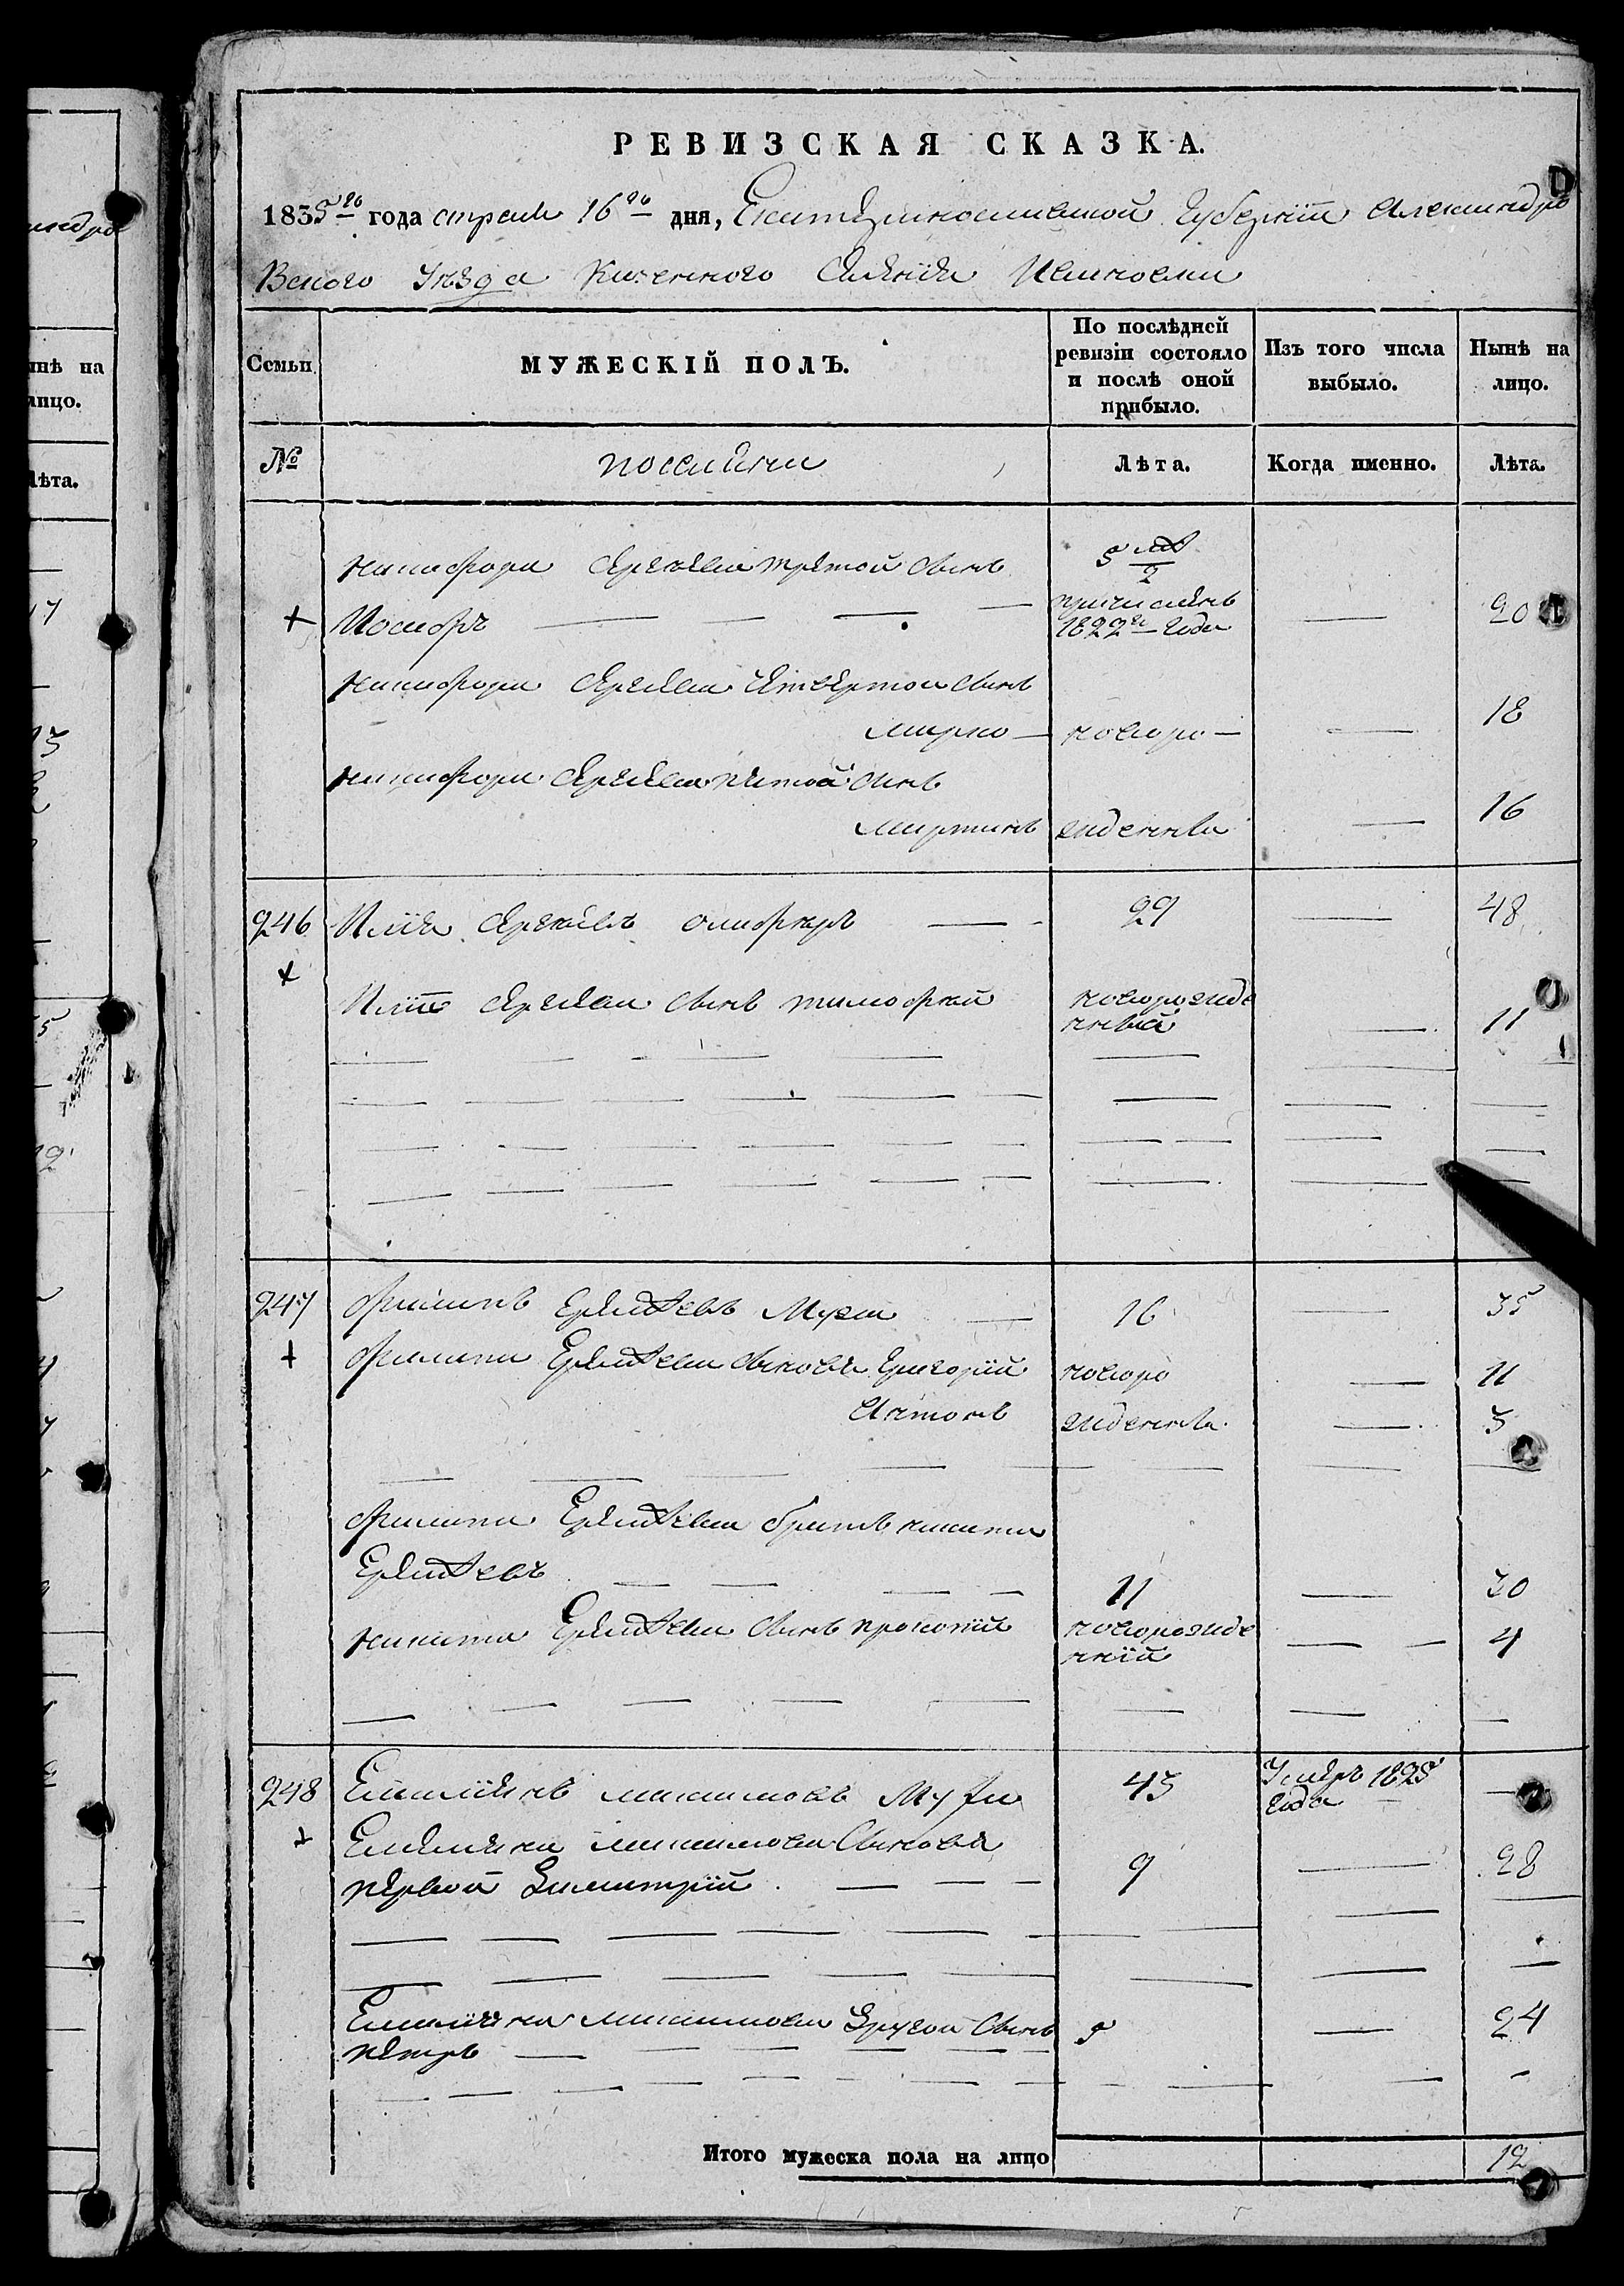 РЕВИЗСКАЯ СКАЗКА.
1835го года апреля 16го дня, Екатеринославской Губернiи Александро
Вского Уезда Казенного Селенiя
Семьи
МУЖЕСКІЙ ПОЛЪ.
По послѣдней ревизіи состояло и послѣ оной прибыло.
Изъ того числа выбыло.
Нынѣ на лицо.
№
поселяни
Лѣта.
Когда именно.
Лѣта.
никифора Сергеева третой сынъ 5 лет
2
Иосифъ причисленъ 1822го года 20
никифора Сергеева четвертои сынъ
марко новоро 18
никифора Сергеева пятой сынъ
мартинъ жденны 16
246 Илiя Сергеевъ 29 48
Илiи Сергеева сынъ тимофей новорожде нный 11
247 филипъ Ермолаевъ Муха 16 35
филипа Ермолаева сыновя Григорiй новоро 11
Антонъ жденны 5
филипа Ермолаева братъ никита
Ермолаевъ 11 30
никита Ермолаева сынъ прокопiй новорожде ннiй 4
248 Емелiянъ максимовъ 45 Умеръ 1825 года
Емелияна максимова Сыновя
первой Димитрiй 9 28
Емелияна максимова Другои Сынъ 5 24
петръ
Итого мужеска пола на лицо 12